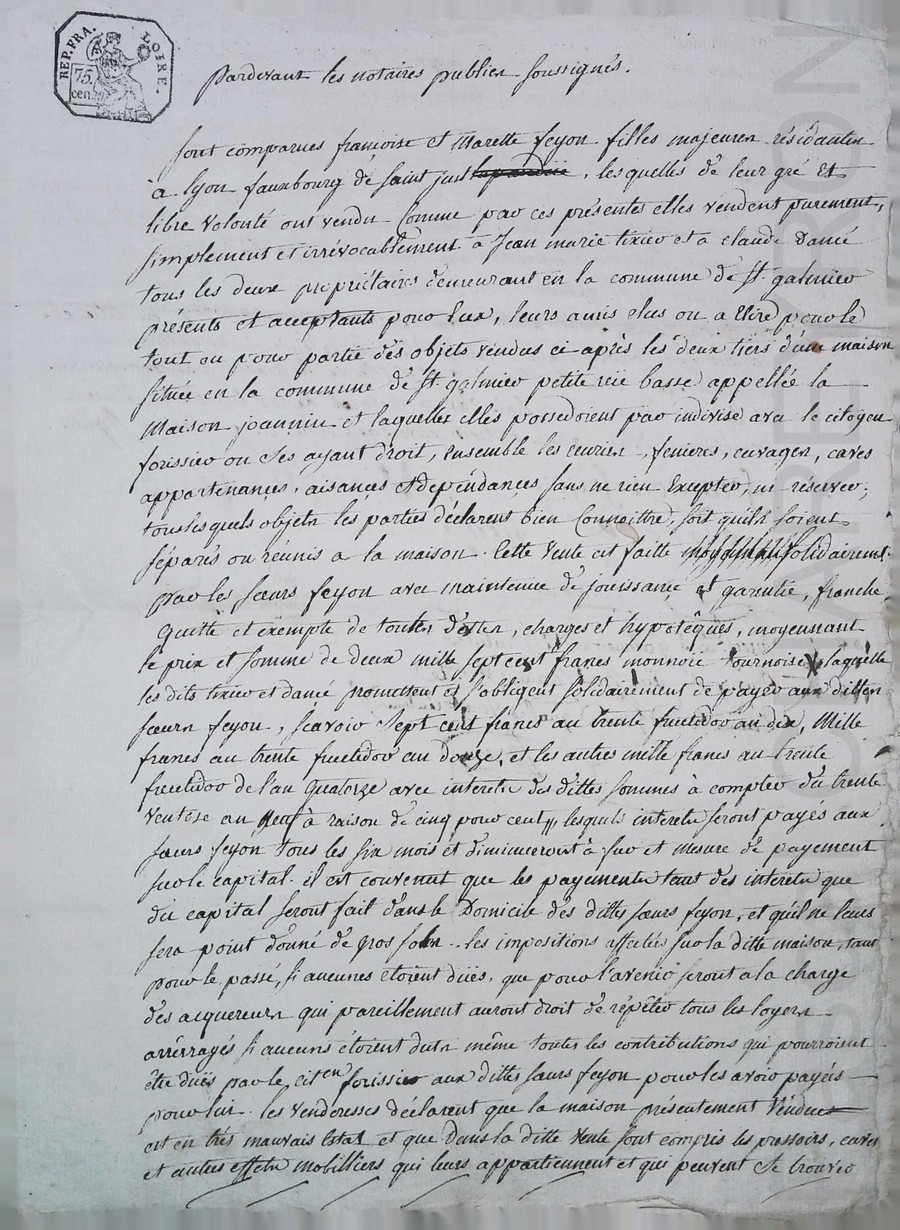 REP. FRA. LOIRE.
75.
cen.
pardevant les notaires publics soussignés.
sont comparues françoise et Mariette feyon filles majeures résidantes
à Lyon fauxbourg de saint just, lesquelles de leur gré Et
libre Volonté ont vendu Comme par ces présentes elles vendent purement,
simplement et irrévocablement à Jean marie tixier et a claude Damé
tous les deux propriétaires demeurant en la commune de St. galmier
présents et acceptants pour Eux, leurs amis elus ou a Elire pour le
tout ou pour partie des objets vendus ci après les deux tiers d'une maison
située en la commune de St. galmier petite rüe basse appellée la
Maison joannin et laquelles elles possedoient par indivise avec le citoyen
forissier ou ses ayant droit, ensemble les ecuries, fenieres, cuvages, caves
appartenances, aisances et dépendances sans ne rien Excepter, ni réserver;
tous lesquels objets les parties déclarent bien Connoittre, soit quils soient
séparés ou réunis a la maison. Cette Vente est faitte solidairemt.
par les sœurs feyon avec maintenue de jouissance et garantie, franche
Quitte et exempte de toutes dettes, charges et hypotêques, moyennant
le prix et somme de deux mille sept cent francs monnoie tournoise X laquelle
les dits tixier et damé promettent et s'obligent solidairement de payer aux dittes
sœurs feyon, scavoir Sept cent francs au trente fructidor an dix, Mille
francs au trente fructidor an douze, et les autres mille francs au trente
fructidor de l'an Quatorze avec interets des dittes sommes à compter du trente
Ventôse an neuf à raison de cinq pour cent, lesquels interets seront payés aux
sœurs feyon tous les six mois et diminueront à fur et mesure de payement
sur le capital. il est convenut que les payements tant des interets que
du capital seront fait dans le Domicile des dittes sœurs feyon, et qu'il ne leurs
sera point donné de gros sols.. les impositions affectées sur la ditte maison, tant
pour le passé, si aucunes étoient düës, que pour l'avenir seront a la charge
des acquereurs qui pareillement auront droit de répéter tous les loyers
arrérragés si aucuns étoient duts même toutes les contributions qui pourroient
être düës par le citen forissier aux dittes sœurs feyon pour les avoir payés
pour lui. les venderesses déclarent que la maison présentement Vendue
est en très mauvais Etat et que dans la ditte Vente sont compris les pressoirs, cuves
et autres effets mobilliers qui leurs appartiennent et qui peuvent se trouver